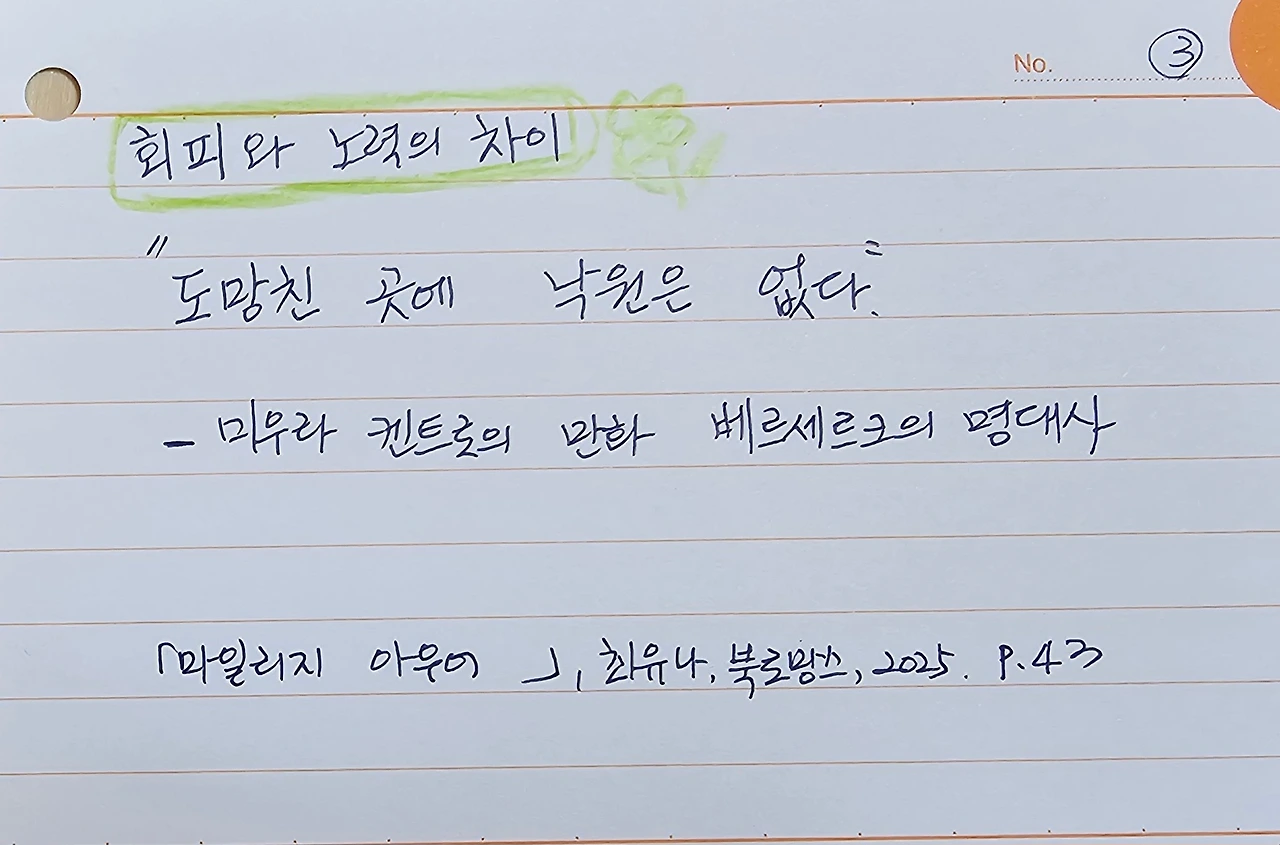 No. ③
회피와 노력의 차이
"도망친 곳에 낙원은 없다."
- 미우라 켄트로의 만화 베르세르크의 명대사
「마일리지 아우어」, 최유나, 북로망스, 2025. P.43